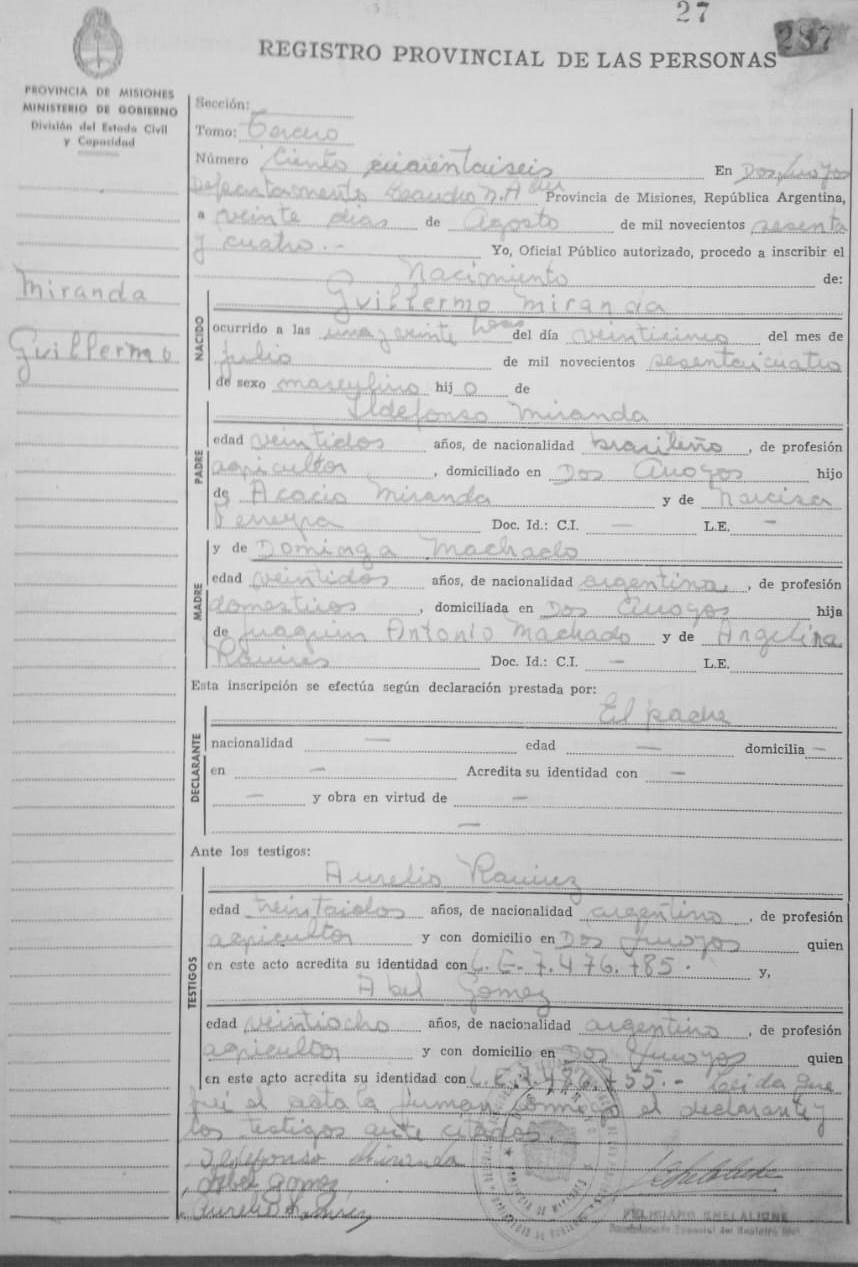 27
237
REGISTRO PROVINCIAL DE LAS PERSONAS
PROVINCIA DE MISIONES
MINISTERIO DE GOBIERNO
División del Estado Civil
y Capacidad
Miranda
Guillermo
Sección:
Tomo: Tercero
Número Ciento cuarentaiseis En Dos Arroyos
Departamento Leandro N. A Provincia de Misiones, República Argentina,
a veinte dias de Agosto de mil novecientos sesenta
y cuatro.- Yo, Oficial Público autorizado, procedo a inscribir el
Nacimiento de:
NACIDO
Guillermo Miranda
ocurrido a las una y veinte horas del día veinticinco del mes de
Julio de mil novecientos sesentaicuatro
de sexo masculino hijo de
PADRE
Ildefonso Miranda
edad veintidos años, de nacionalidad brasileño, de profesión
agricultor, domiciliado en Dos Arroyos hijo
de Acacio Miranda y de Narcisa
Perreyra Doc. Id.: C.I. — L.E. —
y de Dominga Machado
MADRE
edad veintidos años, de nacionalidad argentina, de profesión
domesticos, domiciliada en Dos Arroyos hija
de Juaquin Antonio Machado y de Angelina
Ramires Doc. Id.: C.I. — L.E.
Esta inscripción se efectúa según declaración prestada por:
El padre
DECLARANTE
nacionalidad — edad — domicilia —
en — Acredita su identidad con —
— y obra en virtud de —
—
Ante los testigos:
TESTIGOS
Aurelio Ramirez
edad treintaidos años, de nacionalidad argentino, de profesión
agricultor y con domicilio en Dos Arroyos quien
en este acto acredita su identidad con L.E. 7.476.785. y,
Abel Gomez
edad veintiocho años, de nacionalidad argentino, de profesión
agricultor y con domicilio en Dos Arroyos quien
en este acto acredita su identidad con L.E. .- Leida que
fui el acta la firman conmigo el declarante y
los testigos ante citados.
Ildefonso Miranda
Abel Gomez
Aurelio Ramirez
PROVINCIA DE MISIONES